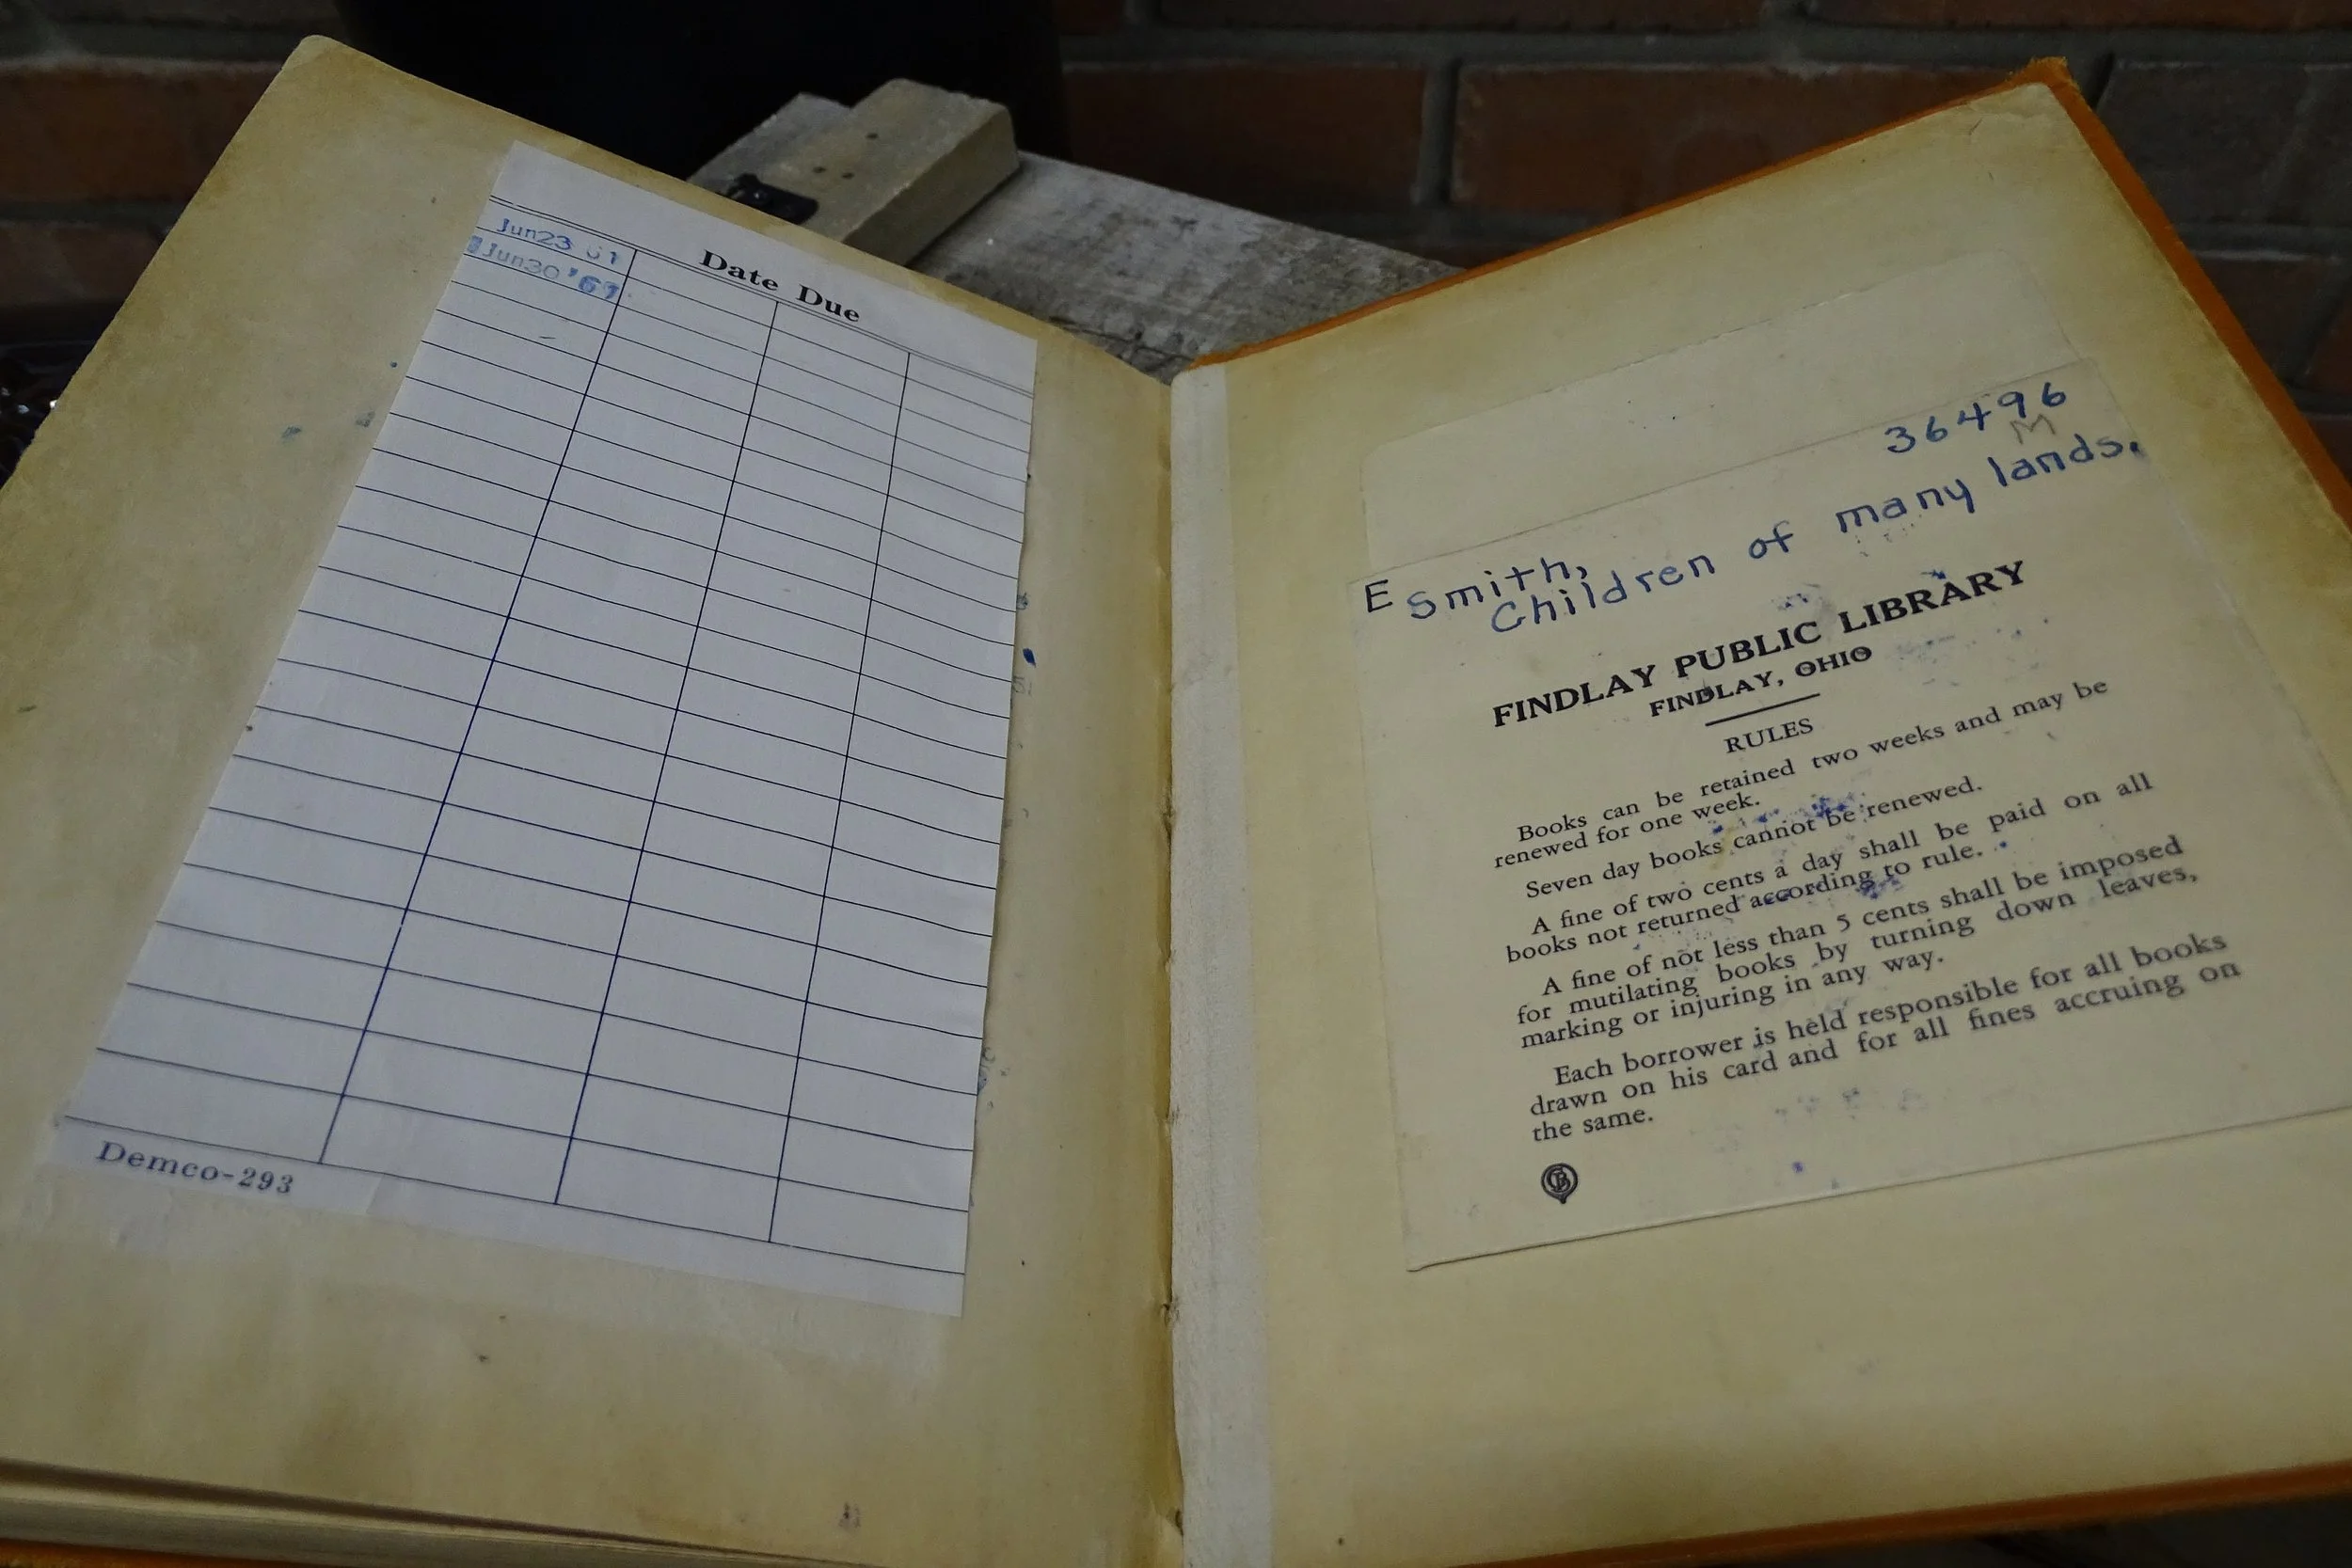 Date Due
Jun23 61
Jun30 '61
Demco-293
36496
M
E Smith,
Children of many lands.
FINDLAY PUBLIC LIBRARY
FINDLAY, OHIO
RULES
Books can be retained two weeks and may be
renewed for one week.
Seven day books cannot be renewed.
A fine of two cents a day shall be paid on all
books not returned according to rule.
A fine of not less than 5 cents shall be imposed
for mutilating books by turning down leaves,
marking or injuring in any way.
Each borrower is held responsible for all books
drawn on his card and for all fines accruing on
the same.